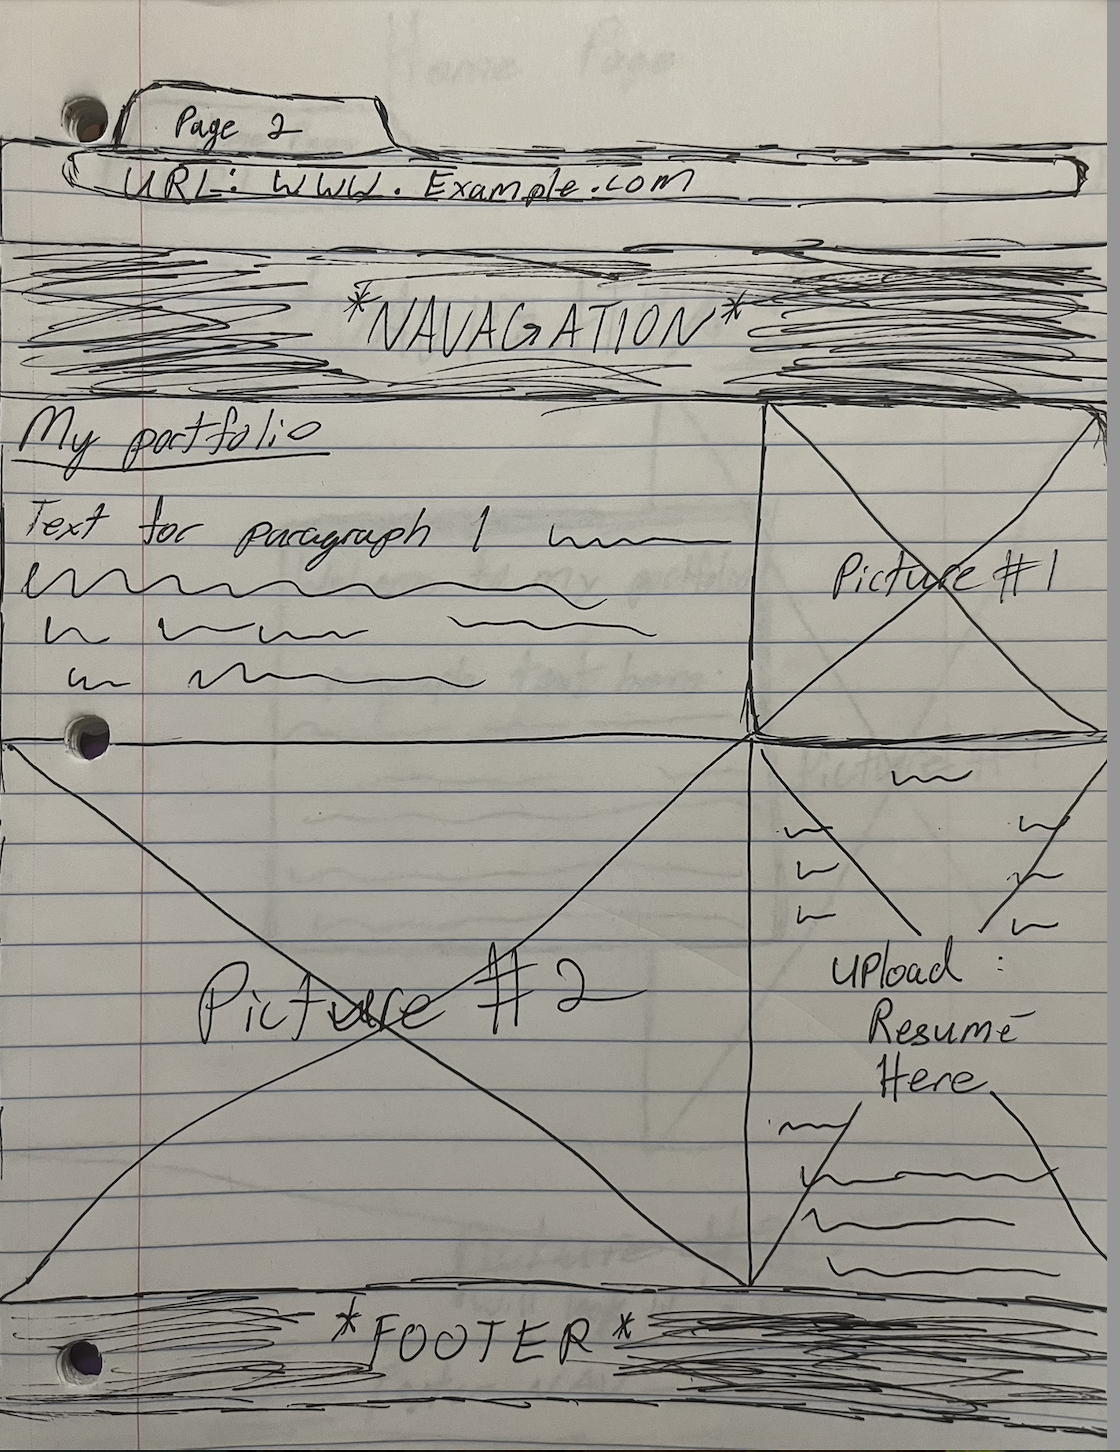 Page 2
URL: WWW.Example.com
*NAVAGATION*
My portfolio
Text for paragraph 1
Picture #1
Picture #2
UPload :
Resumé
Here
*FOOTER*